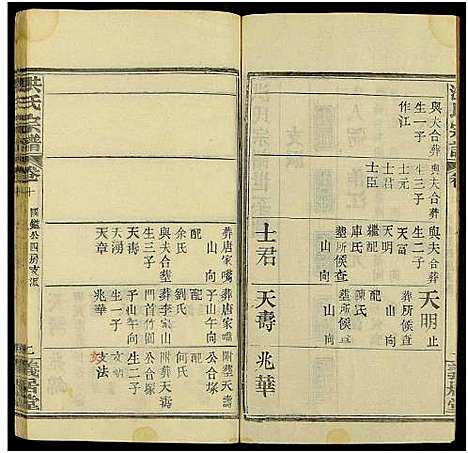 與夫合葬
生一子
作江
與夫合葬
生三子
士元
士君
士臣
與夫合葬
生二子
天富
天明
天明
止
繼配
庫氏
墓所候查
山
向
配
氏
墓所候查
山
向
士君
天壽
兆華
葬唐家嘴
山
向
配
余氏
與夫合葬
生三子
天壽
天湧
天章
葬唐家嘴
子山午向
配
劉氏
葬李家山
門首竹園
子山午向
生一子
兆華
附葬天壽
公合塚
配
何氏
附葬天壽
公合塚
生二子
文法
洪氏宗譜
卷十
國鑑公四房支派
七
義居堂